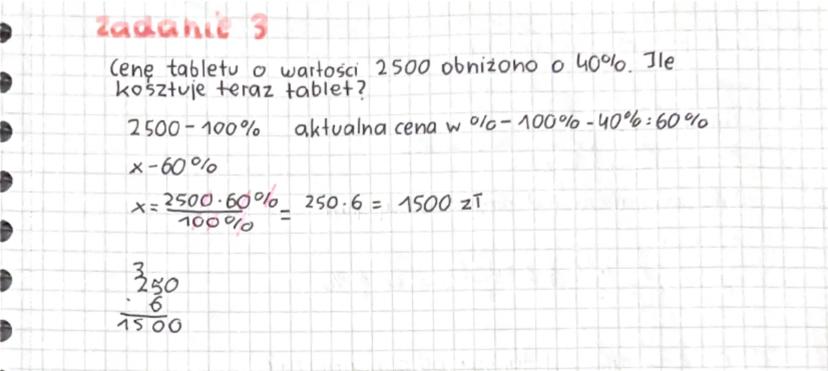 Zadanie 3
Cenę tabletu o wartości 2500 obniżono o 40%. Ile
kosztuje teraz tablet?
2500 - 100% aktualna cena w % - 100% - 40% = 60%
x - 60%
x = 2500 · 60% / 100% = 250 · 6 = 1500 zł
3
250
· 6
1500